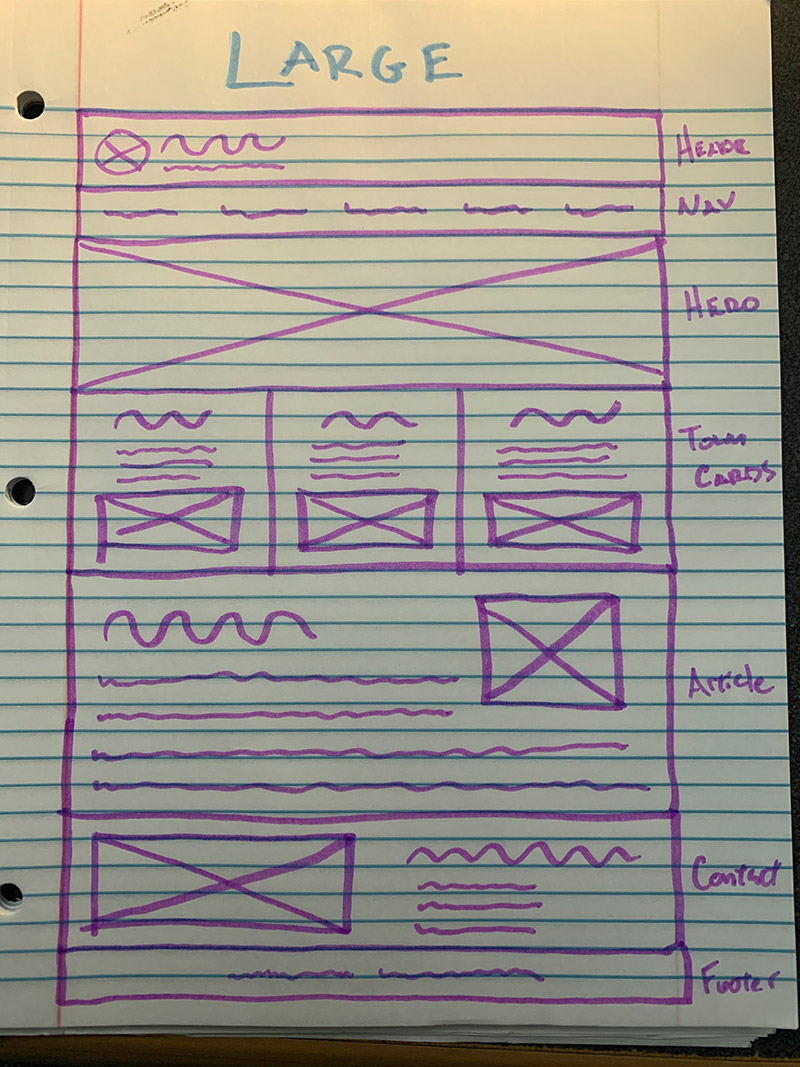 LARGE
HEADR
NAV
HERO
TOUR
CARDS
Article
Contact
Footer